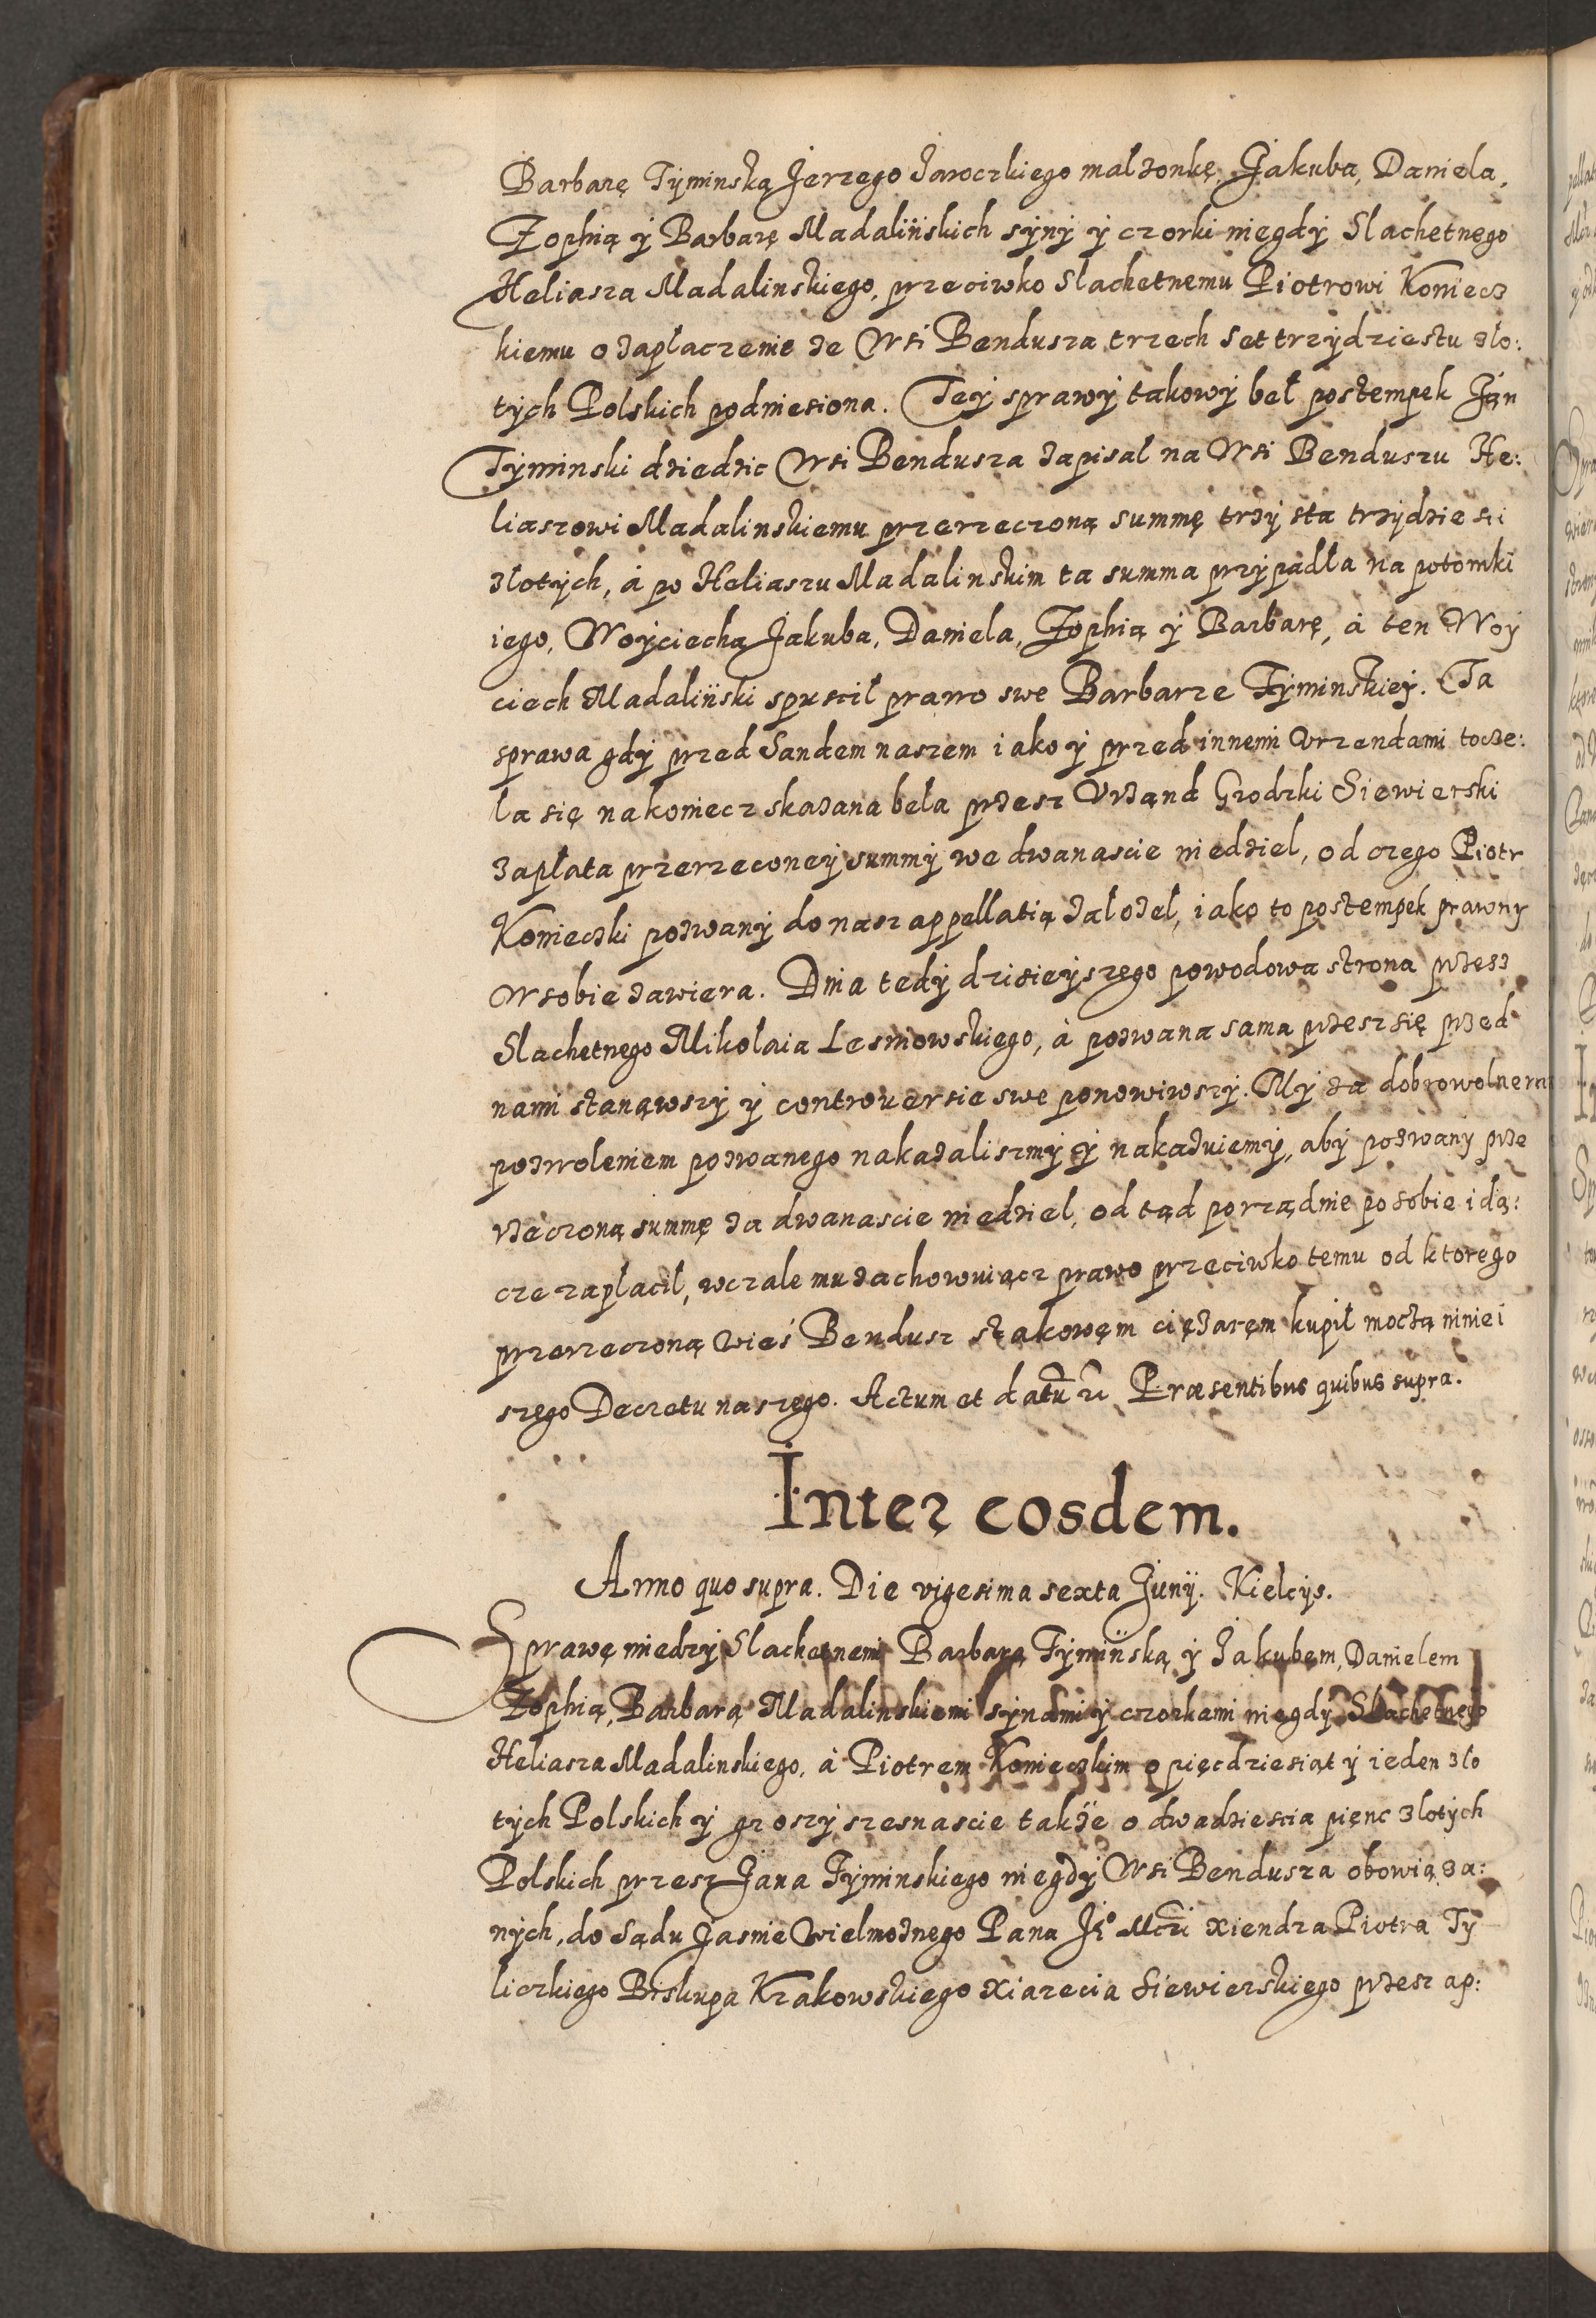 Barbarę Tyminską Jerzego Jaroczkiego malzonkę, Jakuba, Daniela,
Zophią y Barbarę Madalińskich syny y czorki niegdy Slachetnego
Heliasza Madalinskiego, przeciwko Slachetnemu Piotrowi Koniecz
kiemu o zaplaczenie ze Wsi Bendusza trzech set trzydziestu zlo:
tych Polskich podniesiona. Tey sprawy takowy bel postempek Jan
Tyminski dziedzic Wsi Bendusza zapisal na Wsi Benduszu He:
liaszowi Madalinskiemu przerzeczoną summę trzy sta trzydziesci
zlotych, á po Heliaszu Madalinskim ta summa przypadla na potomki
iego, Woyciecha Jakuba, Daniela, Zophią y Barbarę, á ten Woy
ciech Madaliński spuscil prawo swe Barbarze Tyminskiey. Ta
sprawa gdy przed Sandem naszem iako y przed innemi Vrzendami tocze:
la się nakoniecz skazana bela przesz Vrzand Grodzki Siewierski
zaplata przerzeconey summy we dwanascie niedziel, od czego Piotr
Konieczki pozwany do nasz appellatią zalozel, iako to postempek prawny
w sobie zawiera. Dnia tedy dzisieyszego powodowa strona przesz
Slachetnego Mikolaia Lesniowskiego, à pozwana sama przesz się przed
nami stanąwszy y controversie swe ponowiwszy. My za dobrowolnem
pozwoleniem pozwanego nakazaliszmy y nakazuiemy, aby pozwany prze
rzeczoną summę za dwanascie niedziel, od tąd porządnie po sobie idą:
cze zaplacil, wczale mu zachowuiącz prawo przeciwko temu od ktorego
przerzeczoną wieś Bendusz stakowęm ciężaręm kupil moczą niniei
szego Decretu naszego. Actum et datu uc Præsentibus quibus supra.
Inter eosdem.
Anno quo supra. Die vigesima sexta Junij. Kielcijs.
Sprawę miedzy Slachetnemi Barbarą Tymińską y Jakubem, Danielem
Zophią, Barbarą Madalinskiemi synami y czorkami niegdy Slachetnego
Heliasza Madalinskiego, à Piotrem Konieczkim o pięcdziesiąt y ieden zlo
tych Polskich y groszy szesnascie także o dwadziescia pięnc zlotych
Polskich przesz Jana Tyminskiego niegdy Wsi Bendusza obowiąza:
nych, do Sądu Jasnie Wielmoznego Pana Jº Mczi Xiendza Piotra Ty
liczkiego Biskupa Krakowskiego Xiazecia Siewierskiego przesz ap: